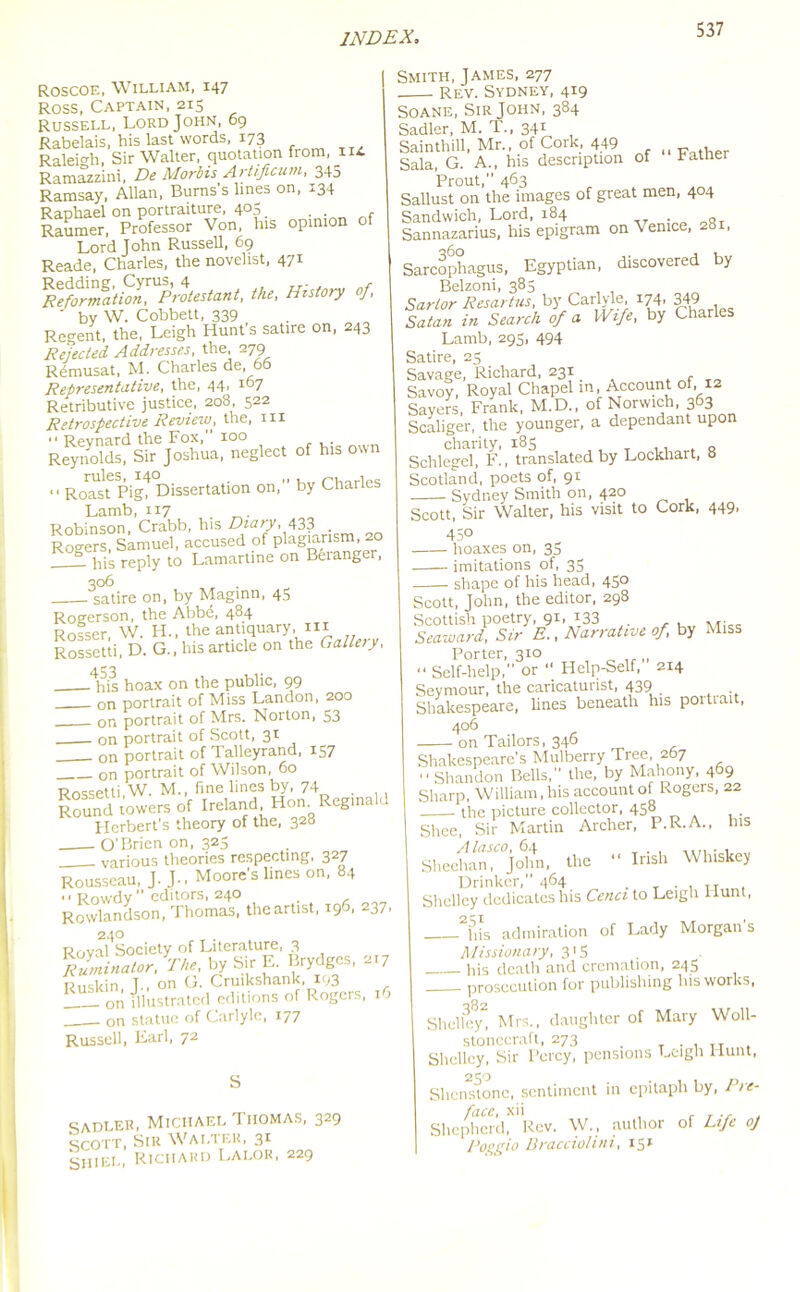 INDEX.
537
ROSCOE, WILLIAM, 147
ROSS, CAPTAIN, 215
RUSSELL, LORD JOHN, 69
Rabelais, his last words, 173
Raleigh, Sir Walter, quotation from, 114
Ramazzini, De Morbis Artificum, 345
Ramsay, Allan, Burns's lines on, 134
Raphael on portraiture, 405
Raumer, Professor Von, his opinion of
Lord John Russell, 69
Reade, Charles, the novelist, 471
Redding, Cyrus, 4
Reformation, Protestant, the, History of,
by W. Cobbett, 339
Regent, the, Leigh Hunt's satire on, 243
Rejected Addresses, the, 279
Rémusat, M. Charles de, 66
Representative, the, 44, 167
Retributive justice, 208, 522
Retrospective Review, the, 111
"Reynard the Fox," 100
Reynolds, Sir Joshua, neglect of his own
rules, 140
"Roast Pig, Dissertation on," by Charles
Lamb, 117
Robinson, Crabb, his Diary, 433
Rogers, Samuel, accused of plagiarism, 20
—— his reply to Lamartine on Béranger,
306
—— satire on, by Maginn, 45
Rogerson, the Abbé, 484
Rosser, W. H., the antiquary, 111
Rossetti, D. G., his article on the Gallery,
453
—— his hoax on the public, 99
—— on portrait of Miss Landon, 200
—— on portrait of Mrs. Norton, 53
—— on portrait of Scott, 31
—— on portrait of Talleyrand, 157
—— on portrait of Wilson, 60
Rossetti, W. M., fine lines by, 74
Round towers of Ireland, Hon. Reginald
Herbert's theory of the, 328
—— O'Brien on, 325
—— various theories respecting, 327
Rousseau, J. J., Moore's lines on, 84
"Rowdy" editors, 240
Rowlandson, Thomas, the artist, 196, 237,
240
Royal Society of Literature, 3
Ruminator, The, by Sir E. Brydges, 217
Ruskin, J., on G. Cruikshank, 193
—— on illustrated editions of Rogers, 16
—— on statue of Carlyle, 177
Russell, Earl, 72
S
SADLER, MICHAEL THOMAS, 329
SCOTT, SIR WALTER, 31
SHIEL, RICHARD LALOR, 229
SMITH, JAMES, 277
—— REV. SYDNEY, 419
SOANE, SIR JOHN, 384
Sadler, M. T., 341
Sainthill, Mr., of Cork, 449
Sala, G. A., his description of "Father
Prout," 463
Sallust on the images of great men, 404
Sandwich, Lord, 184
Sannazarius, his epigram on Venice, 281,
360
Sarcophagus, Egyptian, discovered by
Belzoni, 385
Sartor Resartus, by Carlyle, 174, 349
Satan in Search of a Wife, by Charles
Lamb, 295, 494
Satire, 25
Savage, Richard, 231
Savoy, Royal Chapel in, Account of, 12
Sayers, Frank, M.D., of Norwich, 363
Scaliger, the younger, a dependant upon
charity, 185
Schlegel, F., translated by Lockhart, 8
Scotland, poets of, 91
—— Sydney Smith on, 420
Scott, Sir Walter, his visit to Cork, 449,
450
—— hoaxes on, 35
—— imitations of, 35
—— shape of his head, 450
Scott, John, the editor, 298
Scottish poetry, 91, 133
Seaward, Sir E., Narrative of, by Miss
Porter, 310
"Self-help," or "Help-Self," 214
Seymour, the caricaturist, 439
Shakespeare, lines beneath his portrait,
406
—— on Tailors, 346
Shakespeare's Mulberry Tree, 267
"Shandon Bells," the, by Mahony, 469
Sharp, William, his account of Rogers, 22
—— the picture collector, 458
Shee, Sir Martin Archer, P.R.A., his
Alasco, 64
Sheehan, John, the "Irish Whiskey
Drinker," 464
Shelley dedicates his Cenci to Leigh Hunt,
251
—— his admiration of Lady Morgan's
Missionary, 315
—— his death and cremation, 245
—— prosecution for publishing his works,
382
Shelley, Mrs., daughter of Mary Woll-
stonecraft, 273
Shelley, Sir Percy, pensions Leigh Hunt,
250
Shenstone, sentiment in epitaph by, Pre-
face, xii
Shepherd, Rev. W., author of Life of
Poggio Bracciolini, 151